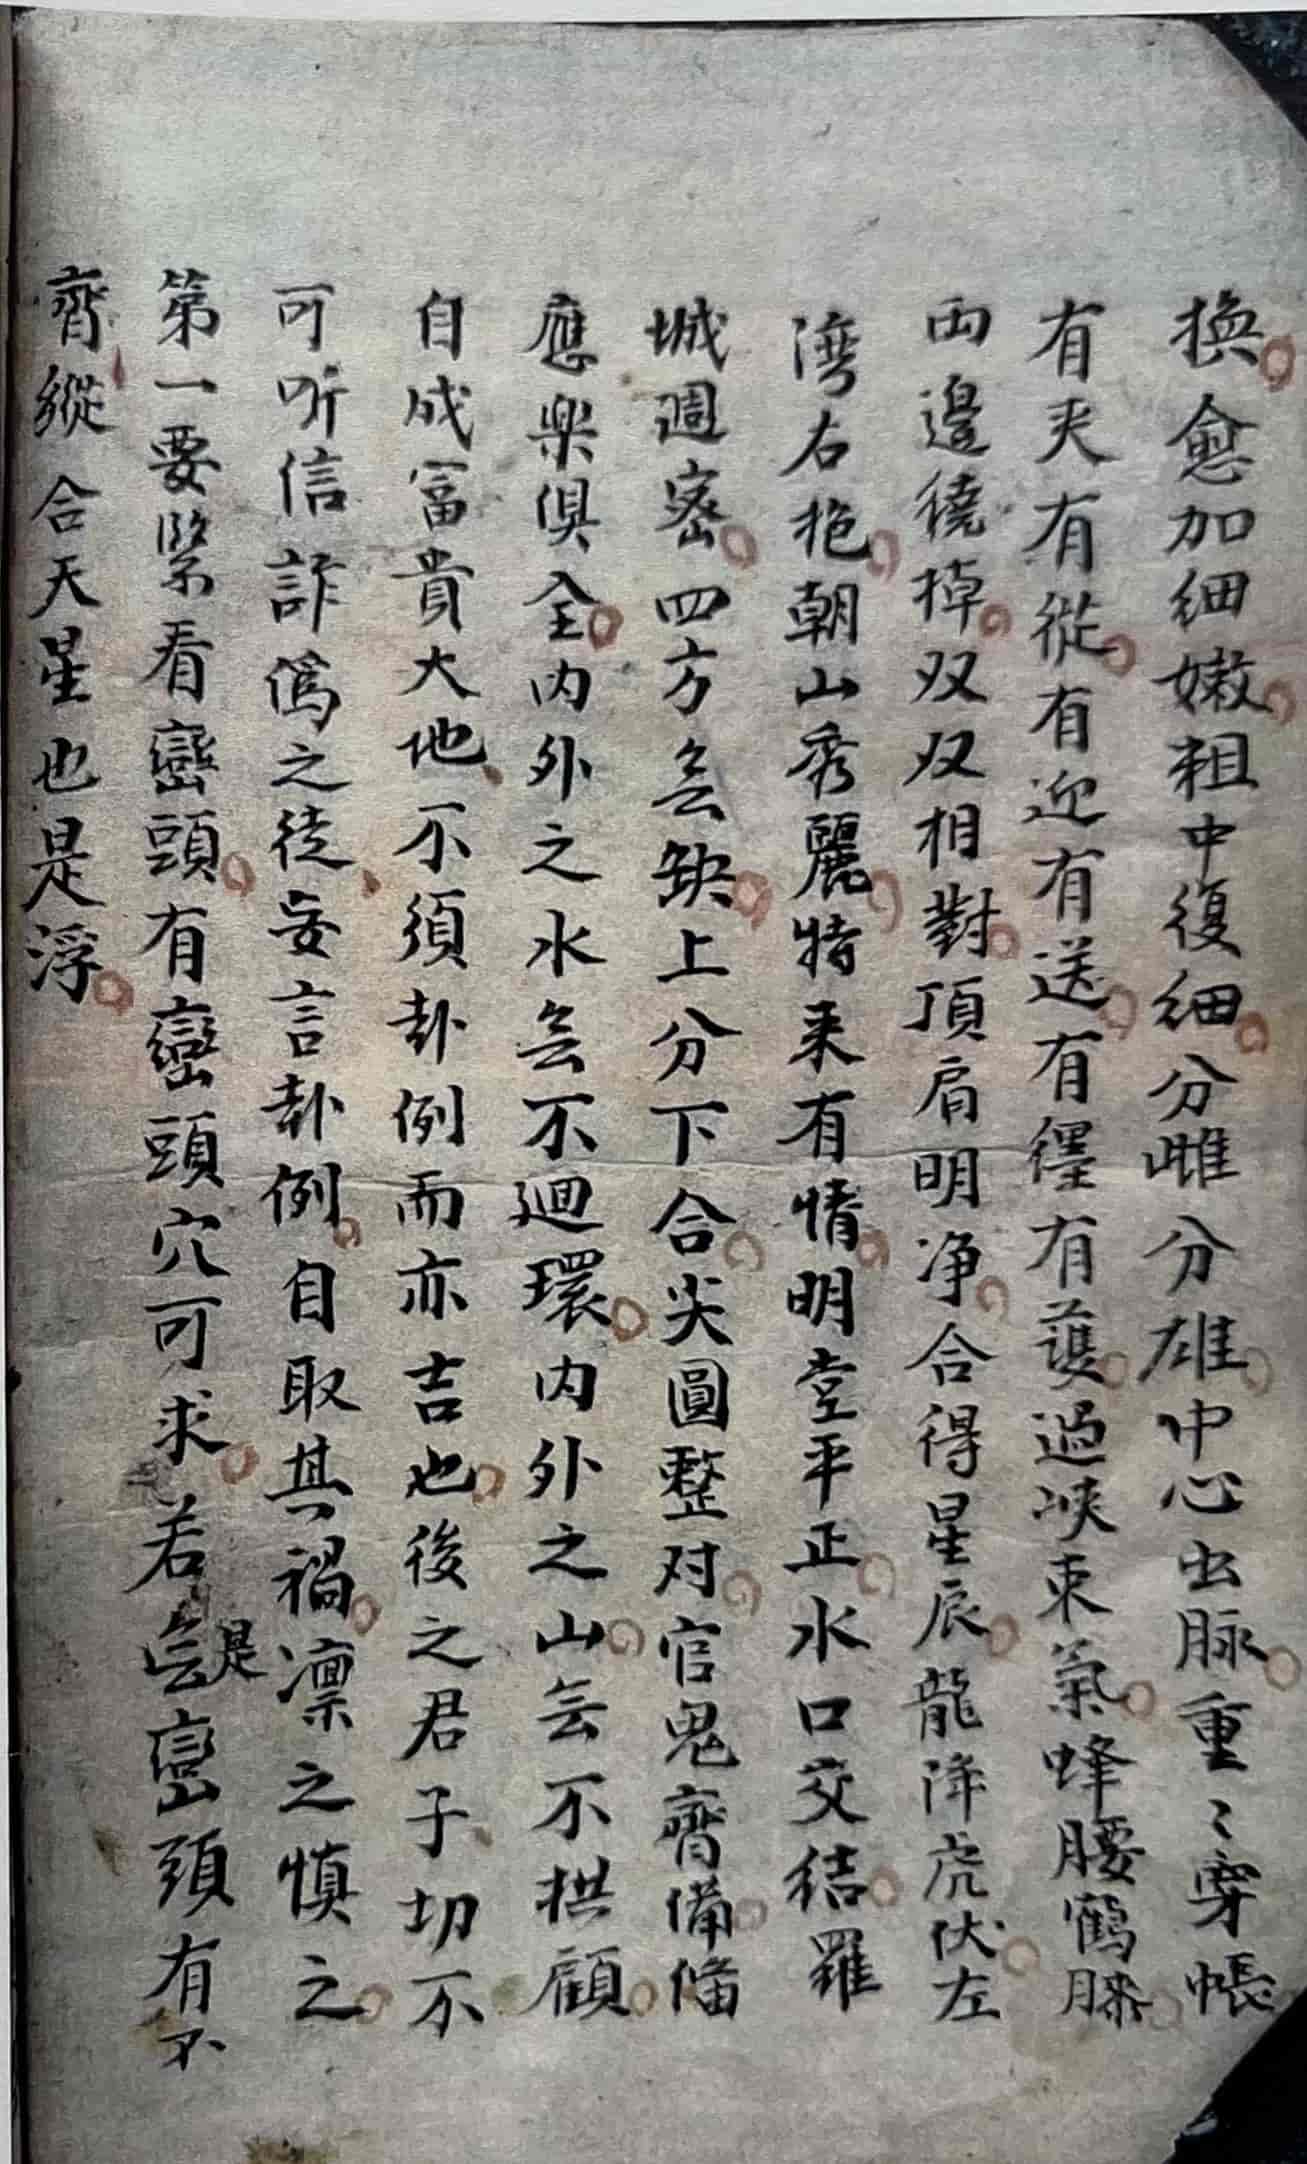 換愈加细嫩粗中復细分雌分雄中心出脉重〻穿帳
有夹有從有迎有送有纒有護過峽束氣蜂腰鶴膝
両邉繞掉双双相對頂肩明净合得星辰龍降虎伏左
湾右抱朝山秀麗特来有情明堂平正水口交結羅
城週密四方㒇缺上分下合尖圓整对官鬼齊備俻
應樂俱全内外之水㒇不迴環内外之山㒇不拱顧
自成冨貴大地不須卦例而亦吉也後之君子切不
可听信詐偽之徒妄言卦例自取其禍凛之慎之
第一要緊看巒頭有巒頭穴可求若是㒇巒頭有不
齊縱合天星也是浮